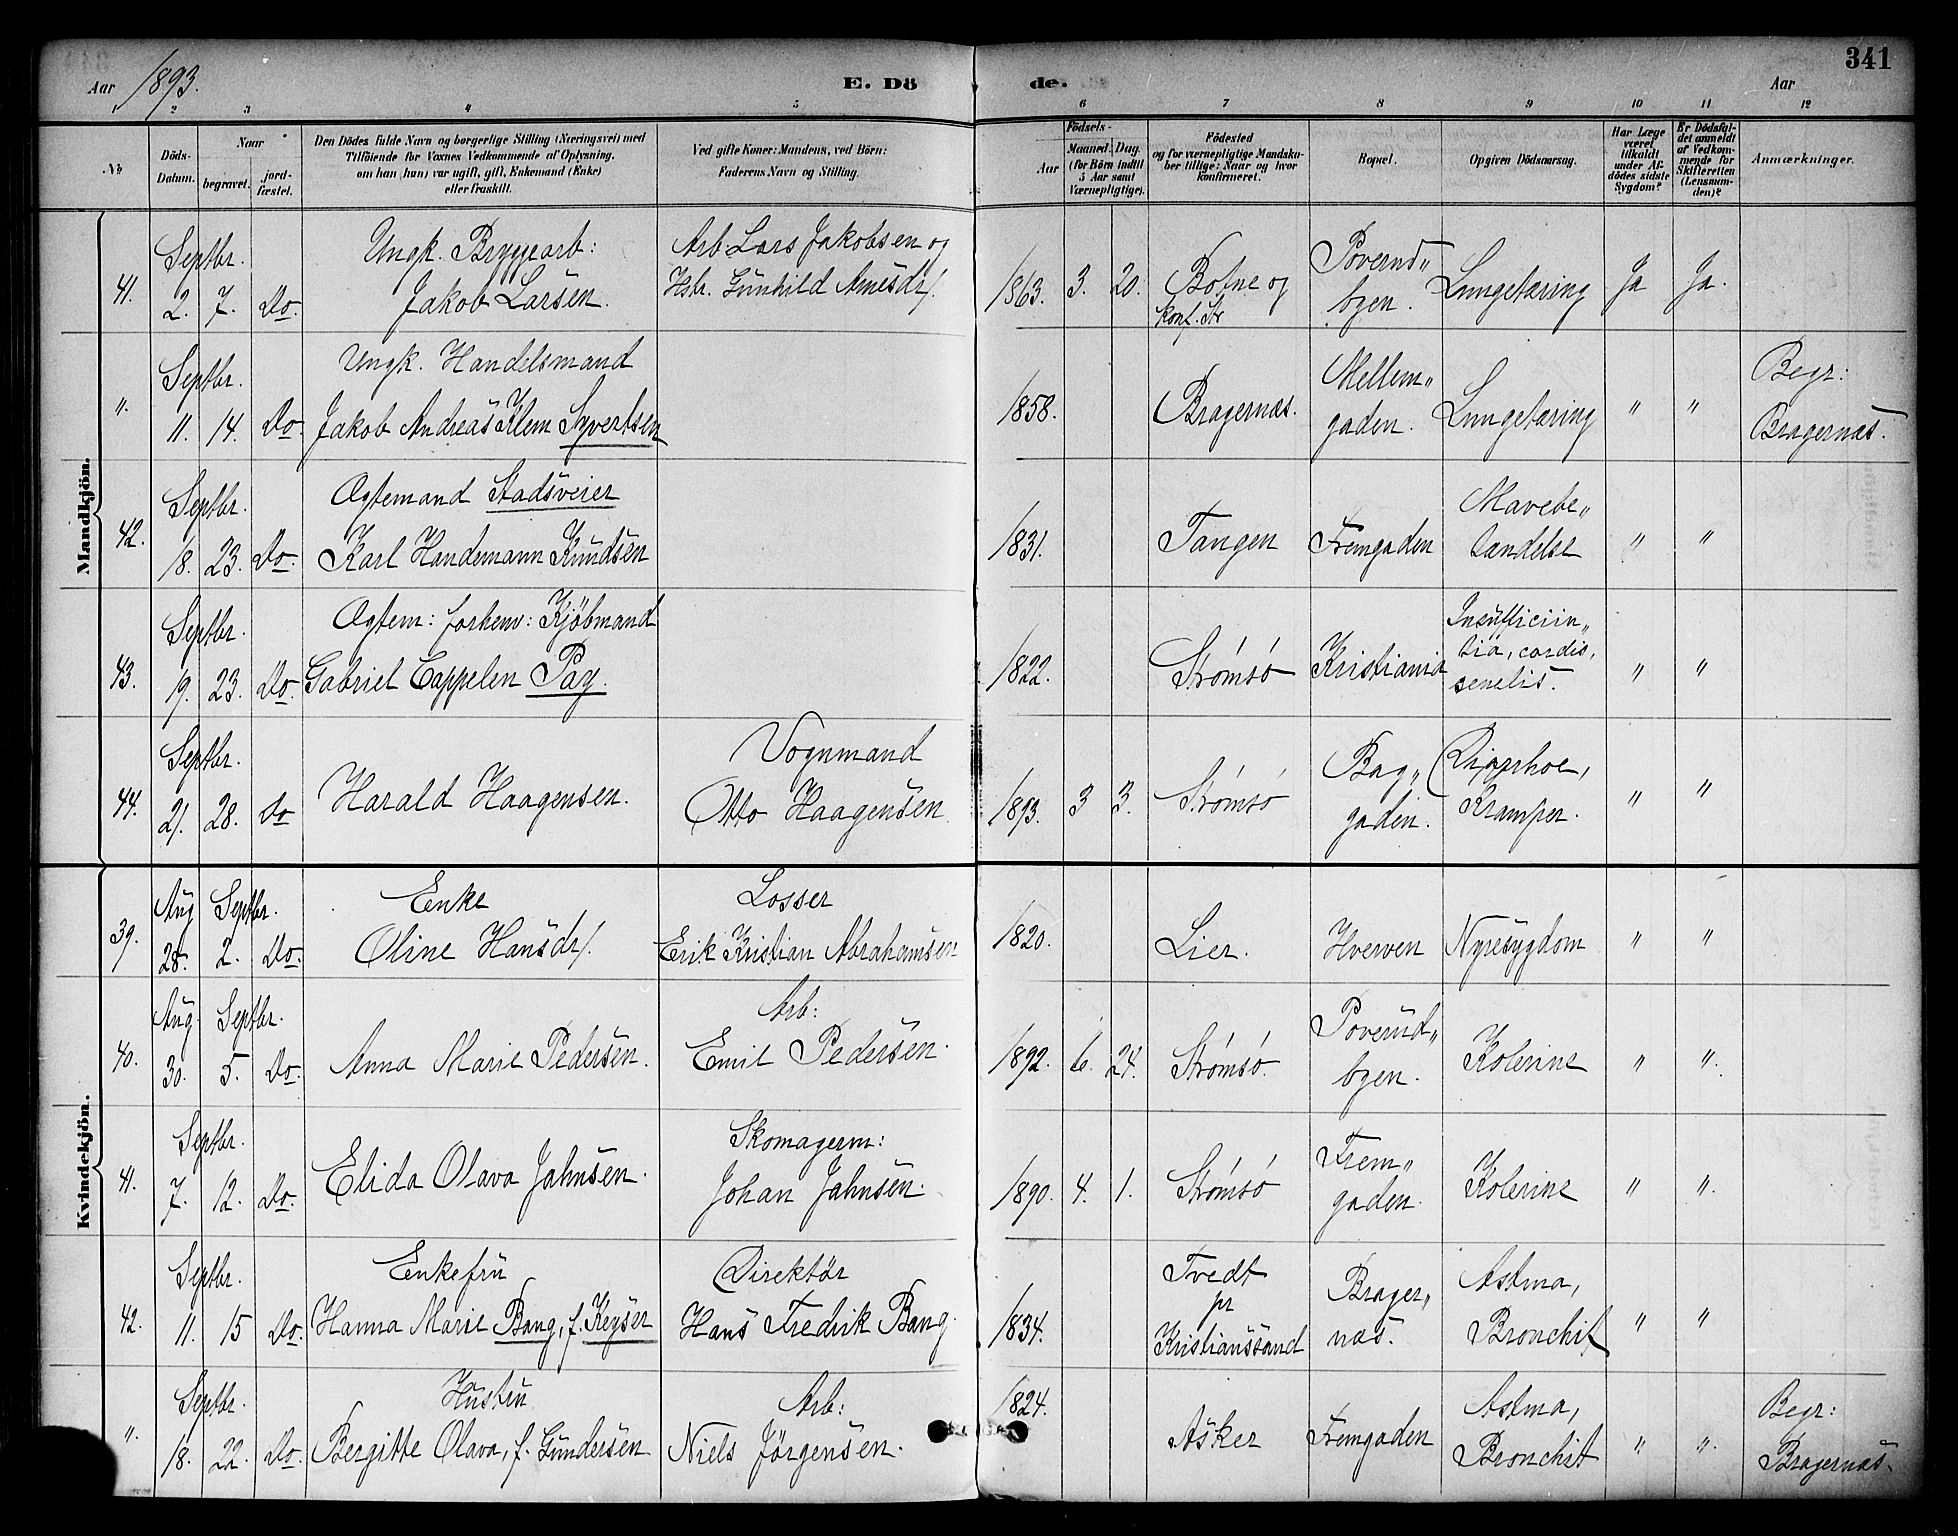 Aar 1893. E. Dö de. Aar 341
1 2 3 4 5 6 7 8 9 10 11 12
No
Döds-Datum.
Naar
begravet.
jord-fæstet.
Den Dödes fulde Navn og borgerlige Stilling (Næringsvei) med
Tilföiende för Voxnes Vedkommende af Oplysning.
om han (hun) var ugift, gift, Enkemand (Enke)
eller fraskilt.
Ved gifte Koner: Mandens, ved Börn:
Faderens Navn og Stilling.
Födsels-
Aar
Maaned. Dag.
(for Börn indtil
5 Aar samt
Værnepligtige).
Födested
og for værnepligtige Mandska-
ber tillige: Naar og hvor
konfirmeret.
Bopæl.
Opgiven Dödsaarsag.
Har Læge
været
tilkaldt
under Af-
dödes sidste
Sygdom?
Er Dödsfal-
det anmeldt
af Vedkom-
mende for
Skifteretten
(Lensman-
den)?
Anmærkninger.
Mandkjön.
Septbr. Ungk. Bryggearb: Arb: Lars Jakobsen og Poverud„
41. 2. 7. Do. Jakob Larsen. Hstr. Gunhild Arnesdr/. 1863. 3. 20. Botne og byen. Lungetæring Ja Ja.
konf. Str
Septbr. Ungk. Handelsmand Mellem„ Begr:
„ 11. 14. Do. Jakob Andreas Klem Syvertsen 1858. Bragernæs. gaden. Lungetæring „ „ Bragernæs.
Septbr. Ægtemand Stadsveier Mavebe„
42. 18. 23. Do. Karl Handemann Knudsen 1831. Tangen Fremgaden tændelse „ „
Septbr. Ægtem: forhenv: Kjöbmand Insufficiin„
43. 19. 23. Do. Gabriel Cappelen Pay. 1822. Strømsø Kristiania tia, cordis, „ „
senelis.
Septbr. Vognmand Bag„ Diarrhoe,
44. 21. 28. Do Harald Haagensen. Otto Haagensen 1893. 3 3. Strømsø gaden. Kramper. „ „
Kvindekjön.
Aug Septbr. Enke Losser
39. 28. 2. Do. Oline Hansdr/. Erik Kristian Abrahamsen 1820. Lier. Hverven Nyresygdom „ „
Aug. Septbr. Arb: Poverud„
40. 30. 5. Do. Anna Marie Pedersen. Emil Pedersen. 1892. 6. 24. Strømsø. byen. Kolerine „ „.
Septbr. Skomagerm: Frem„
41. 7. 12. Do. Elida Olava Jahnsen. Johan Jahnsen. 1890. 4. 1. Strømsø gaden. Kolerine „ „.
Septbr. Enkefru Direktør Tvedt Brager„ Astma,
42. 11. 15 Do. Hanna Marie Bang, f. Keyser Hans Fredrik Bang. 1834. pr næs. Bronchit „ „
Kristianssand
Septbr. Hustru Arb: 1824. Astma, Begr:
„ 18. 22. Do. Bergitte Olava, f. Gundersen Niels Jörgensen. Asker Fremgaden Bronchit „ „. Bragernæs.